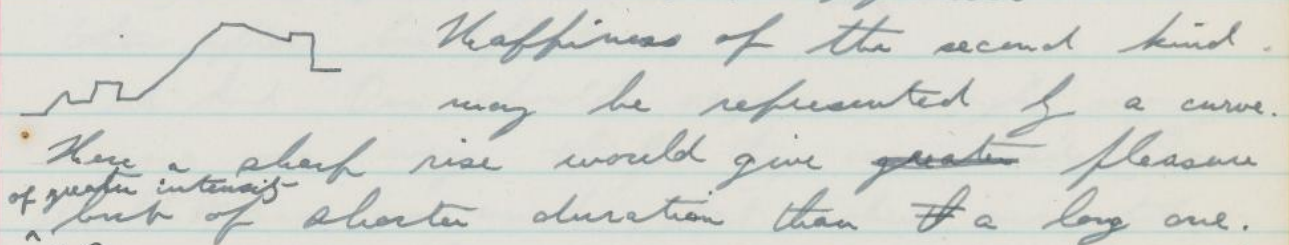 Happiness of the second kind.
may be represented by a curve.
Here a sharp rise would give greater pleasure
of greater intensity
but of shorter duration than a long one.